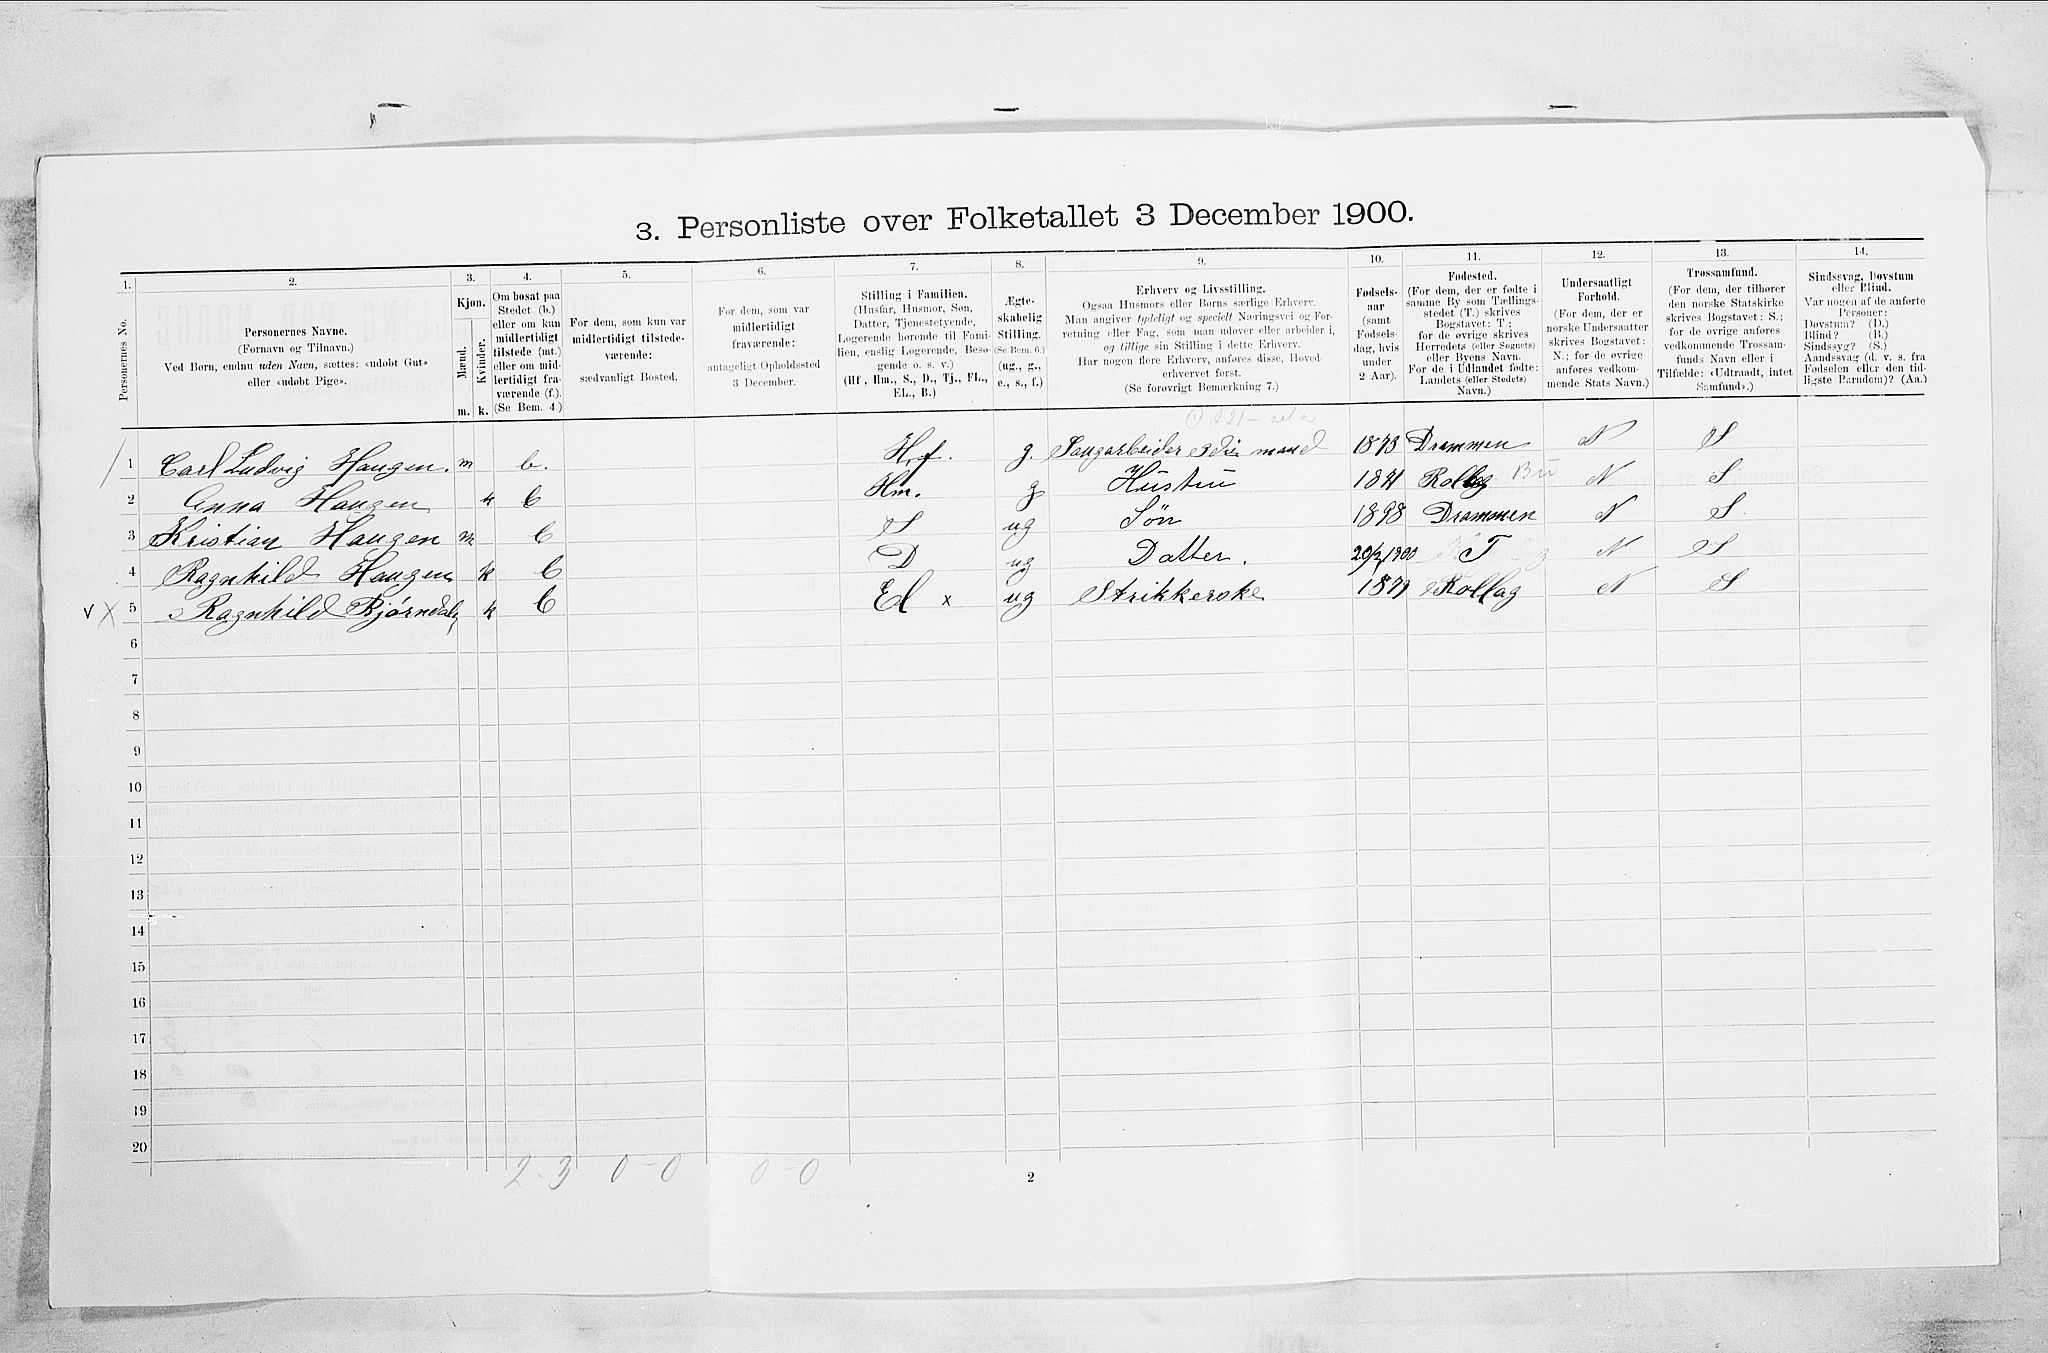 3. Personliste over Folketallet 3 December 1900.
1. 2. 3. 4. 5. 6. 7. 8. 9. 10. 11. 12. 13. 14.
Personernes No.
Personernes Navne.
(Fornavn og Tilnavn.)
Ved Børn, endnu uden Navn, sættes: «udøbt Gut»
eller «udøbt Pige».
Kjøn.
Mænd.
Kvinder.
m. k.
Om bosat paa
Stedet (b.)
eller om kun
midlertidigt
tilstede (mt.)
eller om mid-
lertidigt fra-
værende (f.).
(Se Bem. 4.)
For dem, som kun var
midlertidigt tilstede-
værende:
sædvanligt Bosted.
For dem, som var
midlertidigt
fraværende:
antageligt Opholdssted
3 December.
Stilling i Familien.
(Husfar, Husmor, Søn,
Datter, Tjenestetyende,
Logerende hørende til Fami-
lien, enslig Logerende, Besø-
gende o. s. v.)
(Hf., Hm., S., D., Tj., FL.,
EL., B.)
Ægte-
skabelig
Stilling.
(Se Bem. 6.)
(ug., g.,
e., s., f.)
Erhverv og Livsstilling.
Ogsaa Husmors eller Børns særlige Erhverv.
Man angiver tydeligt og specielt Næringsvei og For-
retning eller Fag, som man udover eller arbeider i,
og tillige sin Stilling i dette Erhverv.
Har nogen flere Erhverv, anføres disse, Hoved-
erhvervet først.
(Se forøvrigt Bemærkning 7.)
Fødsels-
aar
(samt
Fødsels-
dag, hvis
under
2 Aar).
Fødested.
(For dem, der er fødte i
samme By som Tællings-
stedet (T.) skrives
Bogstavet: T.;
for de øvrige skrives
Herredets (eller Sognets)
eller Byens Navn.
For de i Udlandet fødte:
Landets (eller Stedets)
Navn.)
Undersaatligt
Forhold.
(For dem, der er
norske Undersaatter
skrives Bogstavet:
N.; for de øvrige
anføres vedkom-
mende Stats Navn.)
Trossamfund.
(For dem, der tilhører
den norske Statskirke
skrives Bogstavet: S.;
for de øvrige anføres
vedkommende Trossam-
funds Navn eller i
Tilfælde: «Udtraadt, intet
Samfund».)
Sindssvag, Døvstum
eller Blind.
Var nogen af de anførte
Personer:
Døvstum? (D.)
Blind? (B.)
Sindssyg? (S.)
Aandssvag (d. v. s. fra
Fødselen eller den tid-
ligste Barndom)? (Aa.)
1 Carl Ludvig Haugen. m b. Hf. g. 1873 Drammen N S
2 Anna Haugen k b Hm. g Hustru 1871 Rollag Bu N S
3 Kristian Haugen m b S ug Søn 1898 Drammen N S.
4 Ragnhild Haugen k b D ug Datter. 20/2 1900 T N S
v X 5 Ragnhild Bjørndal k b El x ug Strikkerske 1879 Rollag N S
6
7
8
9
10
11
12
13
14
15
16
17
18
19
20
2-3 0-0 0-0
2